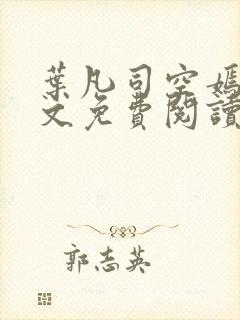 葉凡司空嫣
文免費閱讀
郭志英